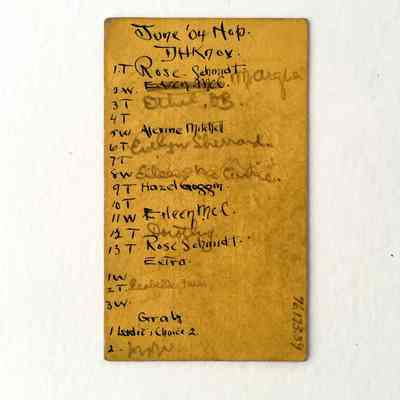 June '04 Hop.
DHKnox.
1 T Rose Schmidt.
2 W. Eileen McC. Margie
3 T Ethel
4 T
5 W Alerine Mitchell
6 T Evelyn Sherrard.
7 T
8 W Eileen
9 T Hazel Goggin
10 T
11 W Eileen McC.
12 T Dorothy
13 T Rose Schmidt.
Extra.
1 W
2 T. Isabelle
3 W.
Grab
1 Leader's Choice 2.
2 -
76.123.39